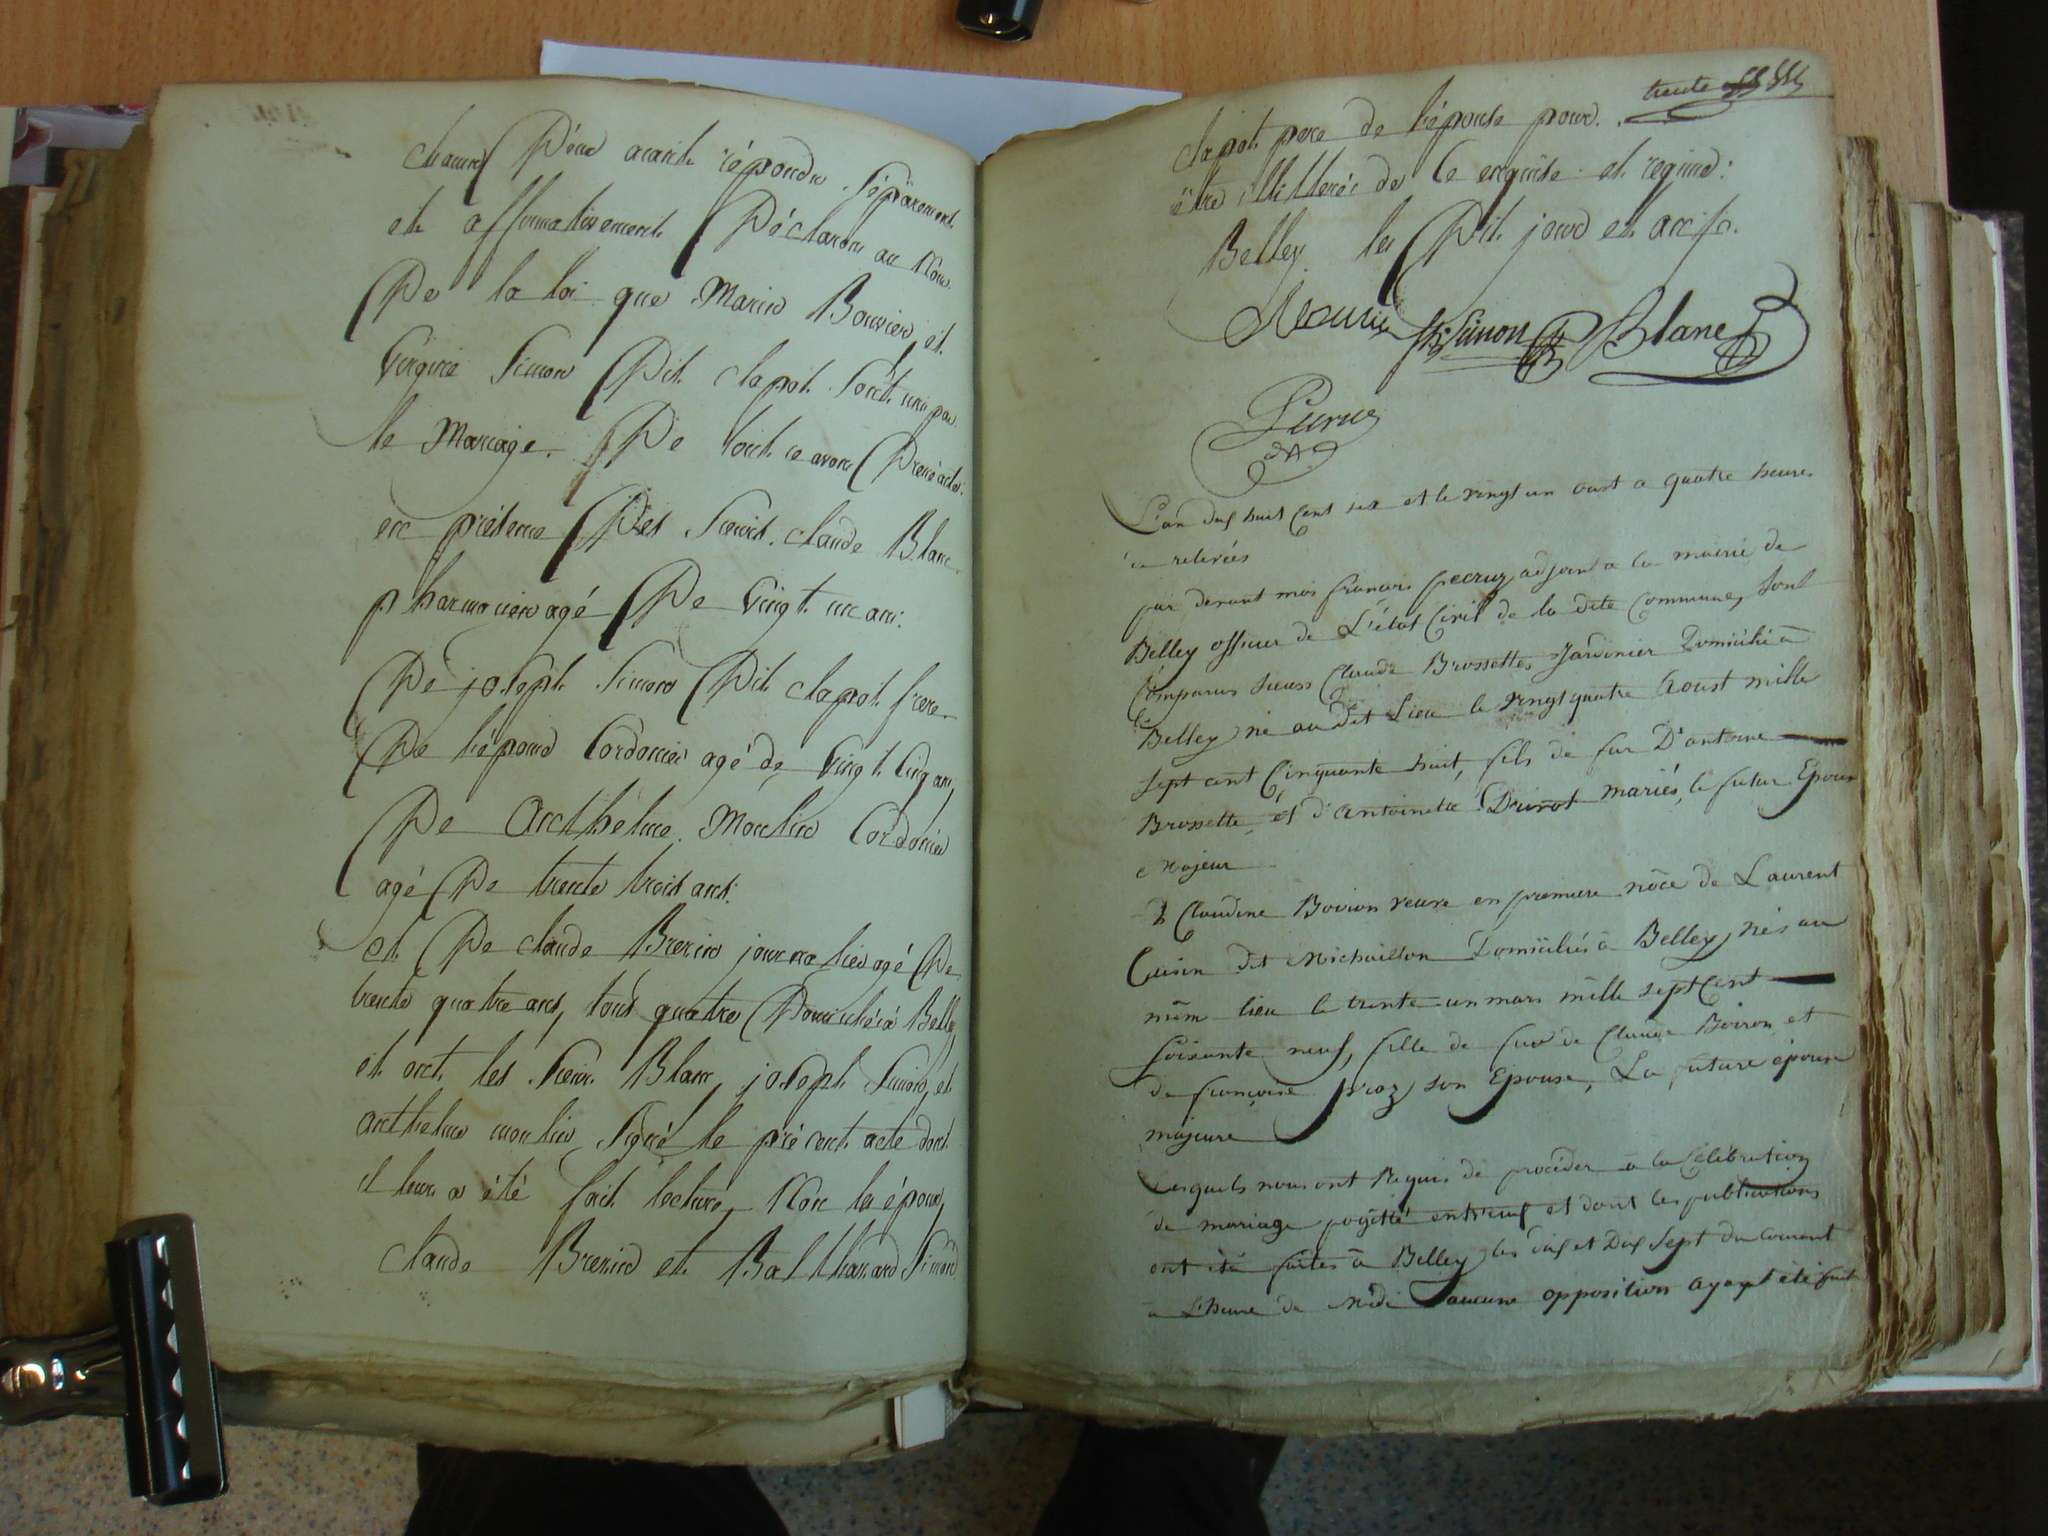 chacun D'eux aiant répondu séparement
et affirmativement Déclarons au Nom
De la loi que Marin Bouvier, et
Virginie Simon Dit clapot sont unis par
le Mariage. De tout ce avons Dressé acte.
en présence Des sieurs claude Blanc
pharmacien agé De vingt un ans.
De joseph Simon Dit clapot frere
De l'épouse Cordonier agé de vingt cinq ans,
De Anthelme Moulin Cordonier
agé De trente trois ans.
et De claude Brenin journalier agé De
trente quatre ans, tous quatre Domiciliés à Belley,
et ont les sieurs Blanc, joseph Simon, et
anthelme moulin signé le présent acte dont
il leur a été fait lecture, Non la épouse,
claude Brenin et Balthazard Simon
trente
clapot pere de l'épouse pour
être illitterés de ce enquis et requis.
Belley les Dit jour et an.
Simon Blanc
L'an dix huit cent six et le vingt un aout a quatre heures
de relevées
par devant moi francois adjoint a la mairie de
Belley officier de L'état Civil de la dite Commune, sont
Comparus sieurs Claude Brossette Jardinier Domicilié à
Belley né au dit Lieu le vingt quatre aoust mille
sept cent Cinquante huit, fils de feu D'antoine
Brossette, et d'antoinette mariés, le futur Epoux
Majeur
& Claudine Boviron veuve en premiere nôce de Laurent
Cusin dit Michaillon Domiciliés à Belley, née au
mêm lieu le trente un mars mille sept Cent
soixante neuf, fille de feu de Claude Boiron et
de françoise son Epouse, La future épouse
majeure
Lesquels nous ont Requis de procéder à la Célébration
de mariage projetté entr'eux et dont les publications
ont été faites à Belley les dix et Dix Sept du Courant
a L'heure de Midi aucune opposition ayant été fait